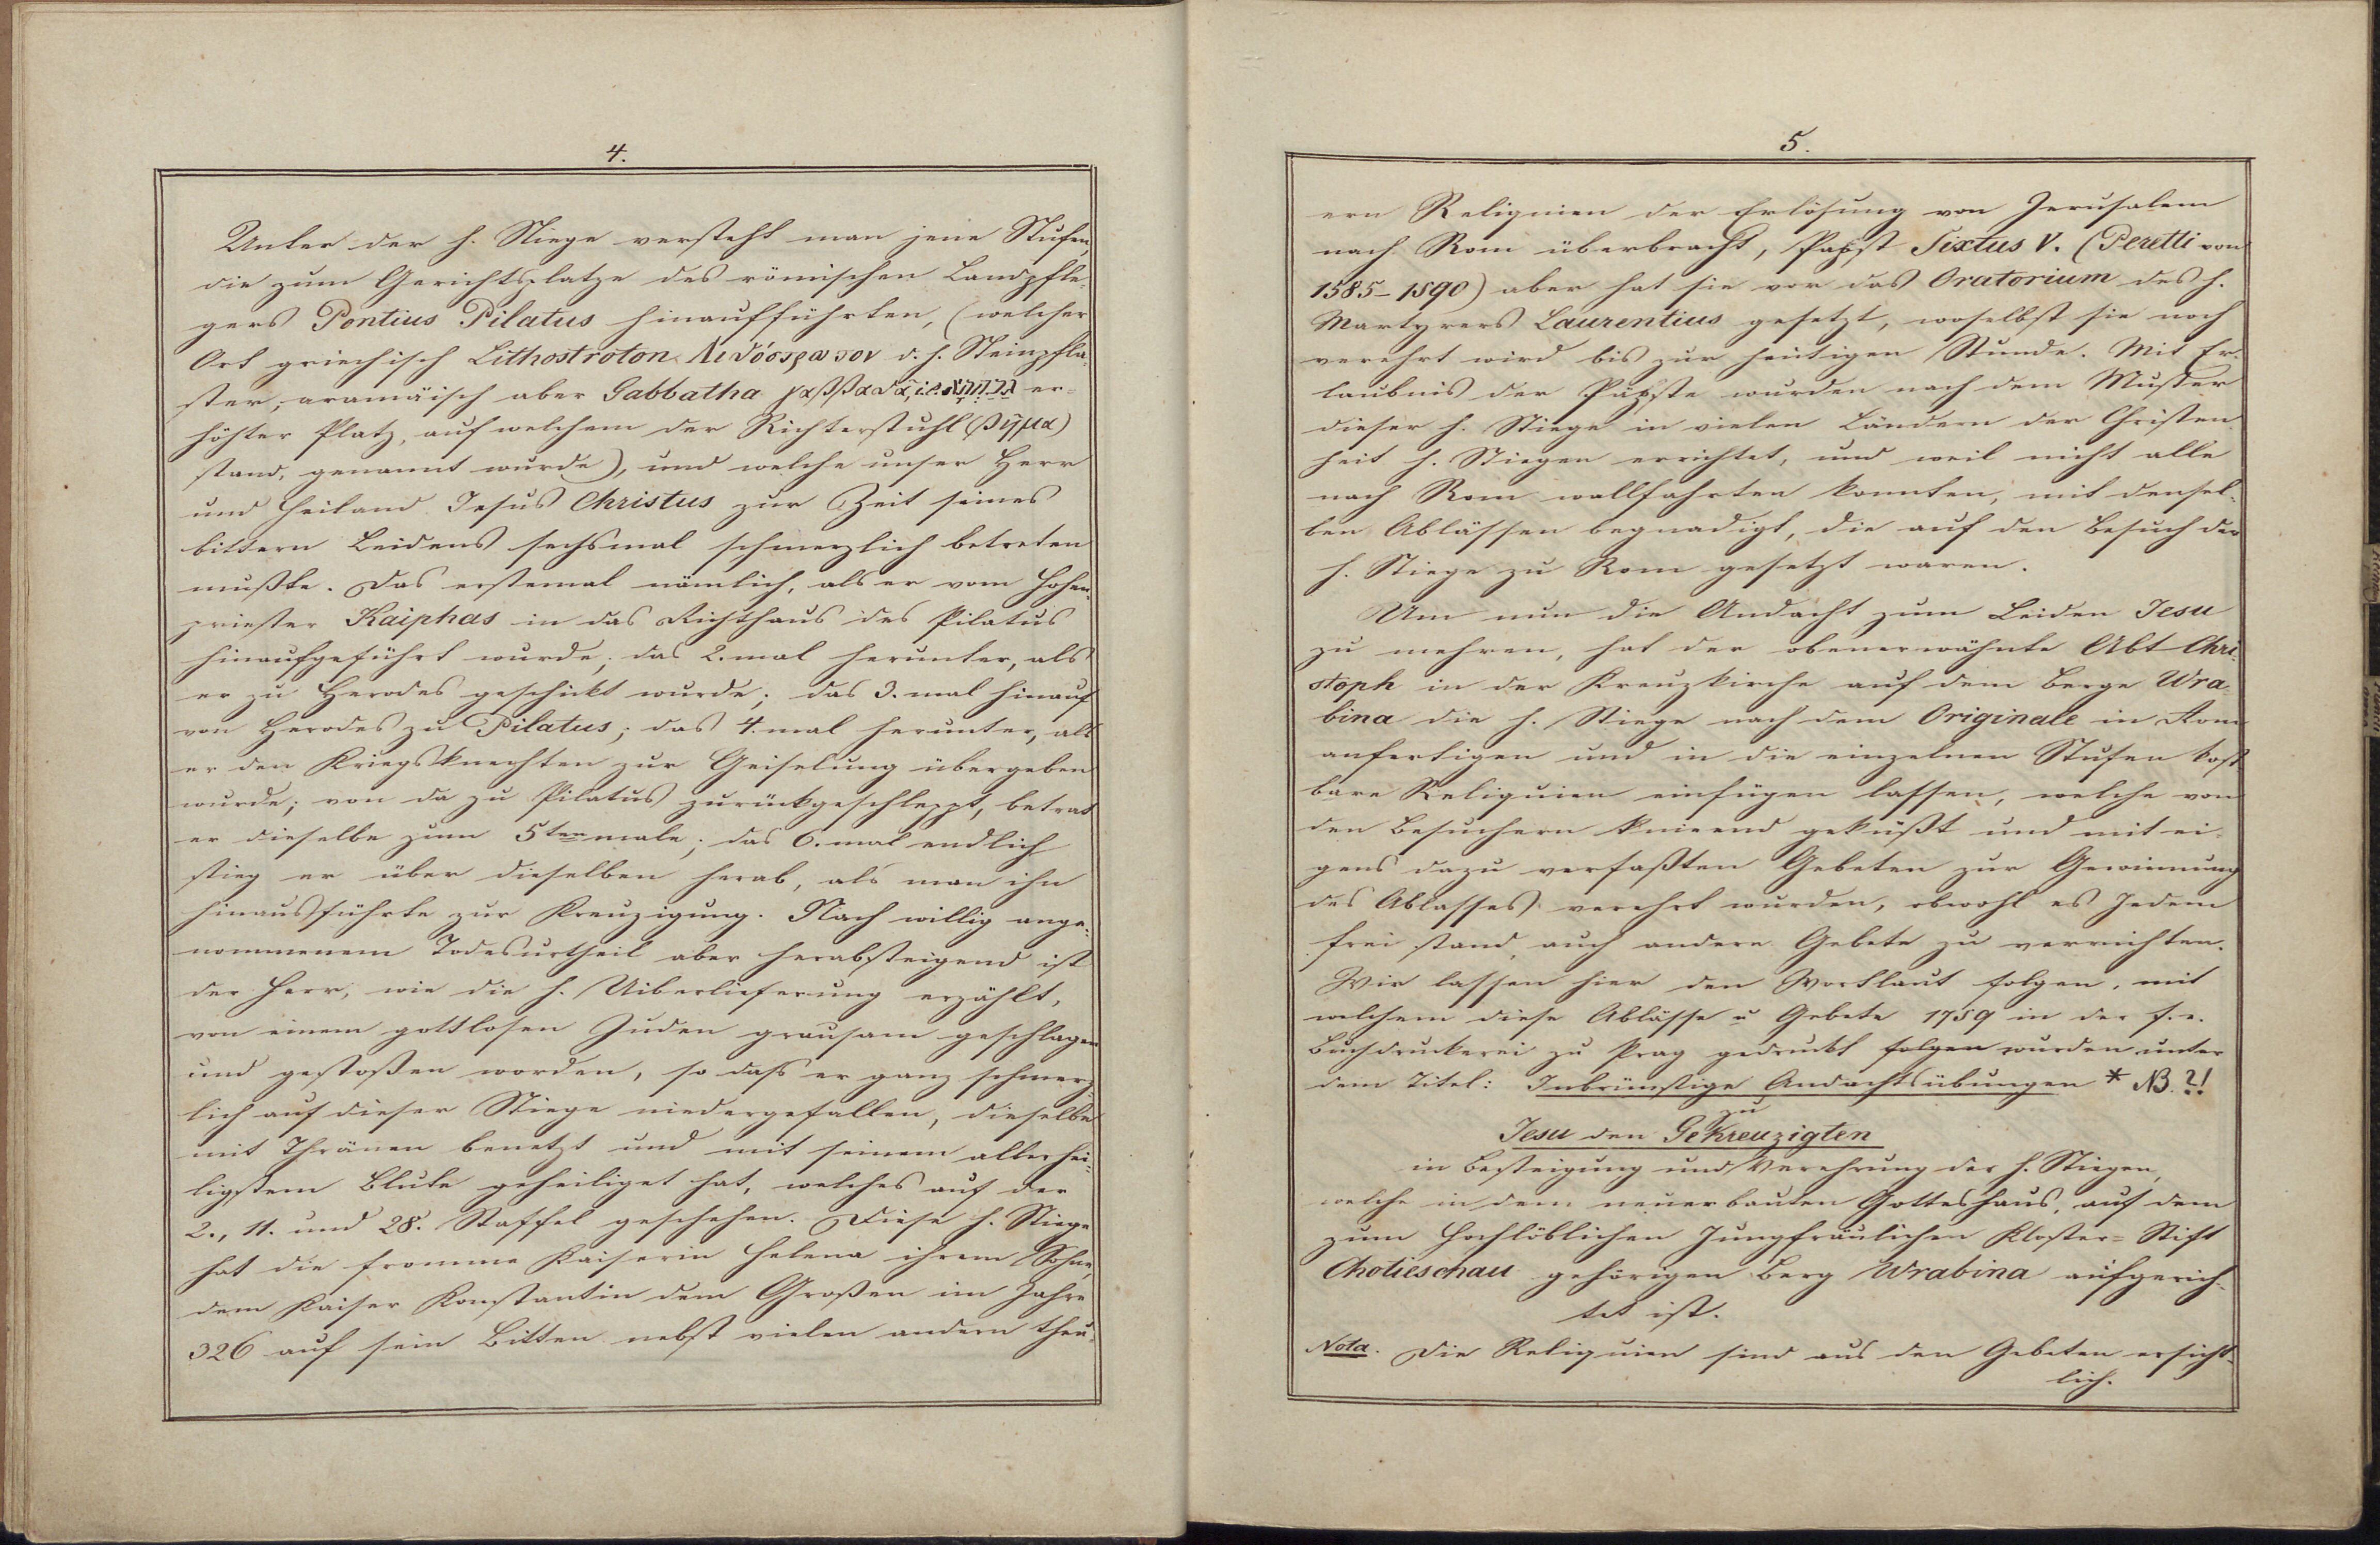 4.
Unter der h. Stiege versteht man jene Stufen,
die zum Gerichtsplatze des römischen Landpfle-
gers Pontius Pilatus hinaufführten, (welcher
Ort griechisch Lithostroton Λιθόστρωτον d. h. Steinpfla-
ster, aramäisch aber Gabbatha γαββαθᾶ, i.e. גבתא er-
höhter Platz, auf welchem der Richterstuhl (βῆμα)
stand, genannt wurde), und welche unser Herr
und Heiland Jesus Christus zur Zeit seines
bittern Leidens sechsmal schmerzlich betreten
mußte. Das erstemal nämlich, als er vom Hohen-
priester Kaiphas in das Richthaus des Pilatus
hinaufgeführt wurde; das 2. mal herunter, als
er zu Herodes geschikt wurde; das 3. mal hinauf
von Herodes zu Pilatus; das 4. mal herunter, als
er den Kriegsknechten zur Geiselung übergeben
wurde; von da zu Pilatus zurückgeschleppt, betrat
er dieselbe zum 5ten male; das 6. mal endlich
stieg er über dieselben herab, als man ihn
hinausführte zur Kreuzigung. Nach willig ange-
nommenem Todesurtheil aber herabsteigend ist
der Herr, wie die h. Uiberlieferung erzählt,
von einem gottlosen Juden grausam geschlagen
und gestoßen worden, so daß er ganz schmerz-
lich auf dieser Stiege niedergefallen, dieselbe
mit Thränen benetzt und mit seinem allerhei-
ligstem Blute geheiliget hat, welches auf der
2., 11. und 28. Staffel geschehen. Diese h. Stiege
hat die fromme Kaiserin Helena ihrem Sohne,
dem Kaiser Konstantin dem Großen im Jahre
326 auf sein Bitten nebst vielen andern theu-
5.
ern Reliquien der Erlösung von Jerusalem
nach Rom überbracht, Pabst Sixtus V. (Peretti von
1585-1590) aber hat sie vor das Oratorium des h.
Martyrers Laurentius gesetzt, woselbst sie noch
verehrt wird bis zur heutigen Stunde. Mit Er-
laubnis der Päbste wurden nach dem Muster
dieser h. Stiege in vielen Ländern der Christen-
heit h. Stiegen errichtet, und weil nicht alle
nach Rom wallfahrten konnten, mit densel-
ben Ablässen begnadigt, die auf den Besuch der
h. Stiege zu Rom gesetzt waren.
Um nun die Andacht zum Leiden Jesu
zu mehren, hat der obenerwähnte Abt Chri-
stoph in der Kreuzkirche auf dem Berge Wra-
bina die h. Stiege nach dem Originale in Rom
anfertigen und in die einzelnen Stufen kost-
bare Reliquien einfügen lassen, welche von
den Besuchern knieend geküßt und mit ei-
gens dazu verfaßten Gebeten zur Gewinnung
des Ablasses verehrt wurden, obwohl es Jedem
frei stand, auch andere Gebete zu verrichten.
Wir lassen hier den Wortlaut folgen, mit
welchem diese Ablässe u Gebete 1759 in der f. e.
Buchdruckerei zu Prag gedruckt folgen wurden unter
dem Titel: Inbrünstige Andachtsübungen * NB. ?!
zu
Jesu den Gekreuzigten
in Besteigung und Verehrung der h. Stiegen,
welche in dem neuerbauten Gotteshaus, auf dem
zum Hochlöblichen Jungfräulichen Kloster-Stift
Chotieschau gehörigen Berg Wrabina aufgerich-
tet ist.
Nota. Die Reliquien sind aus den Gebeten ersicht-
lich.